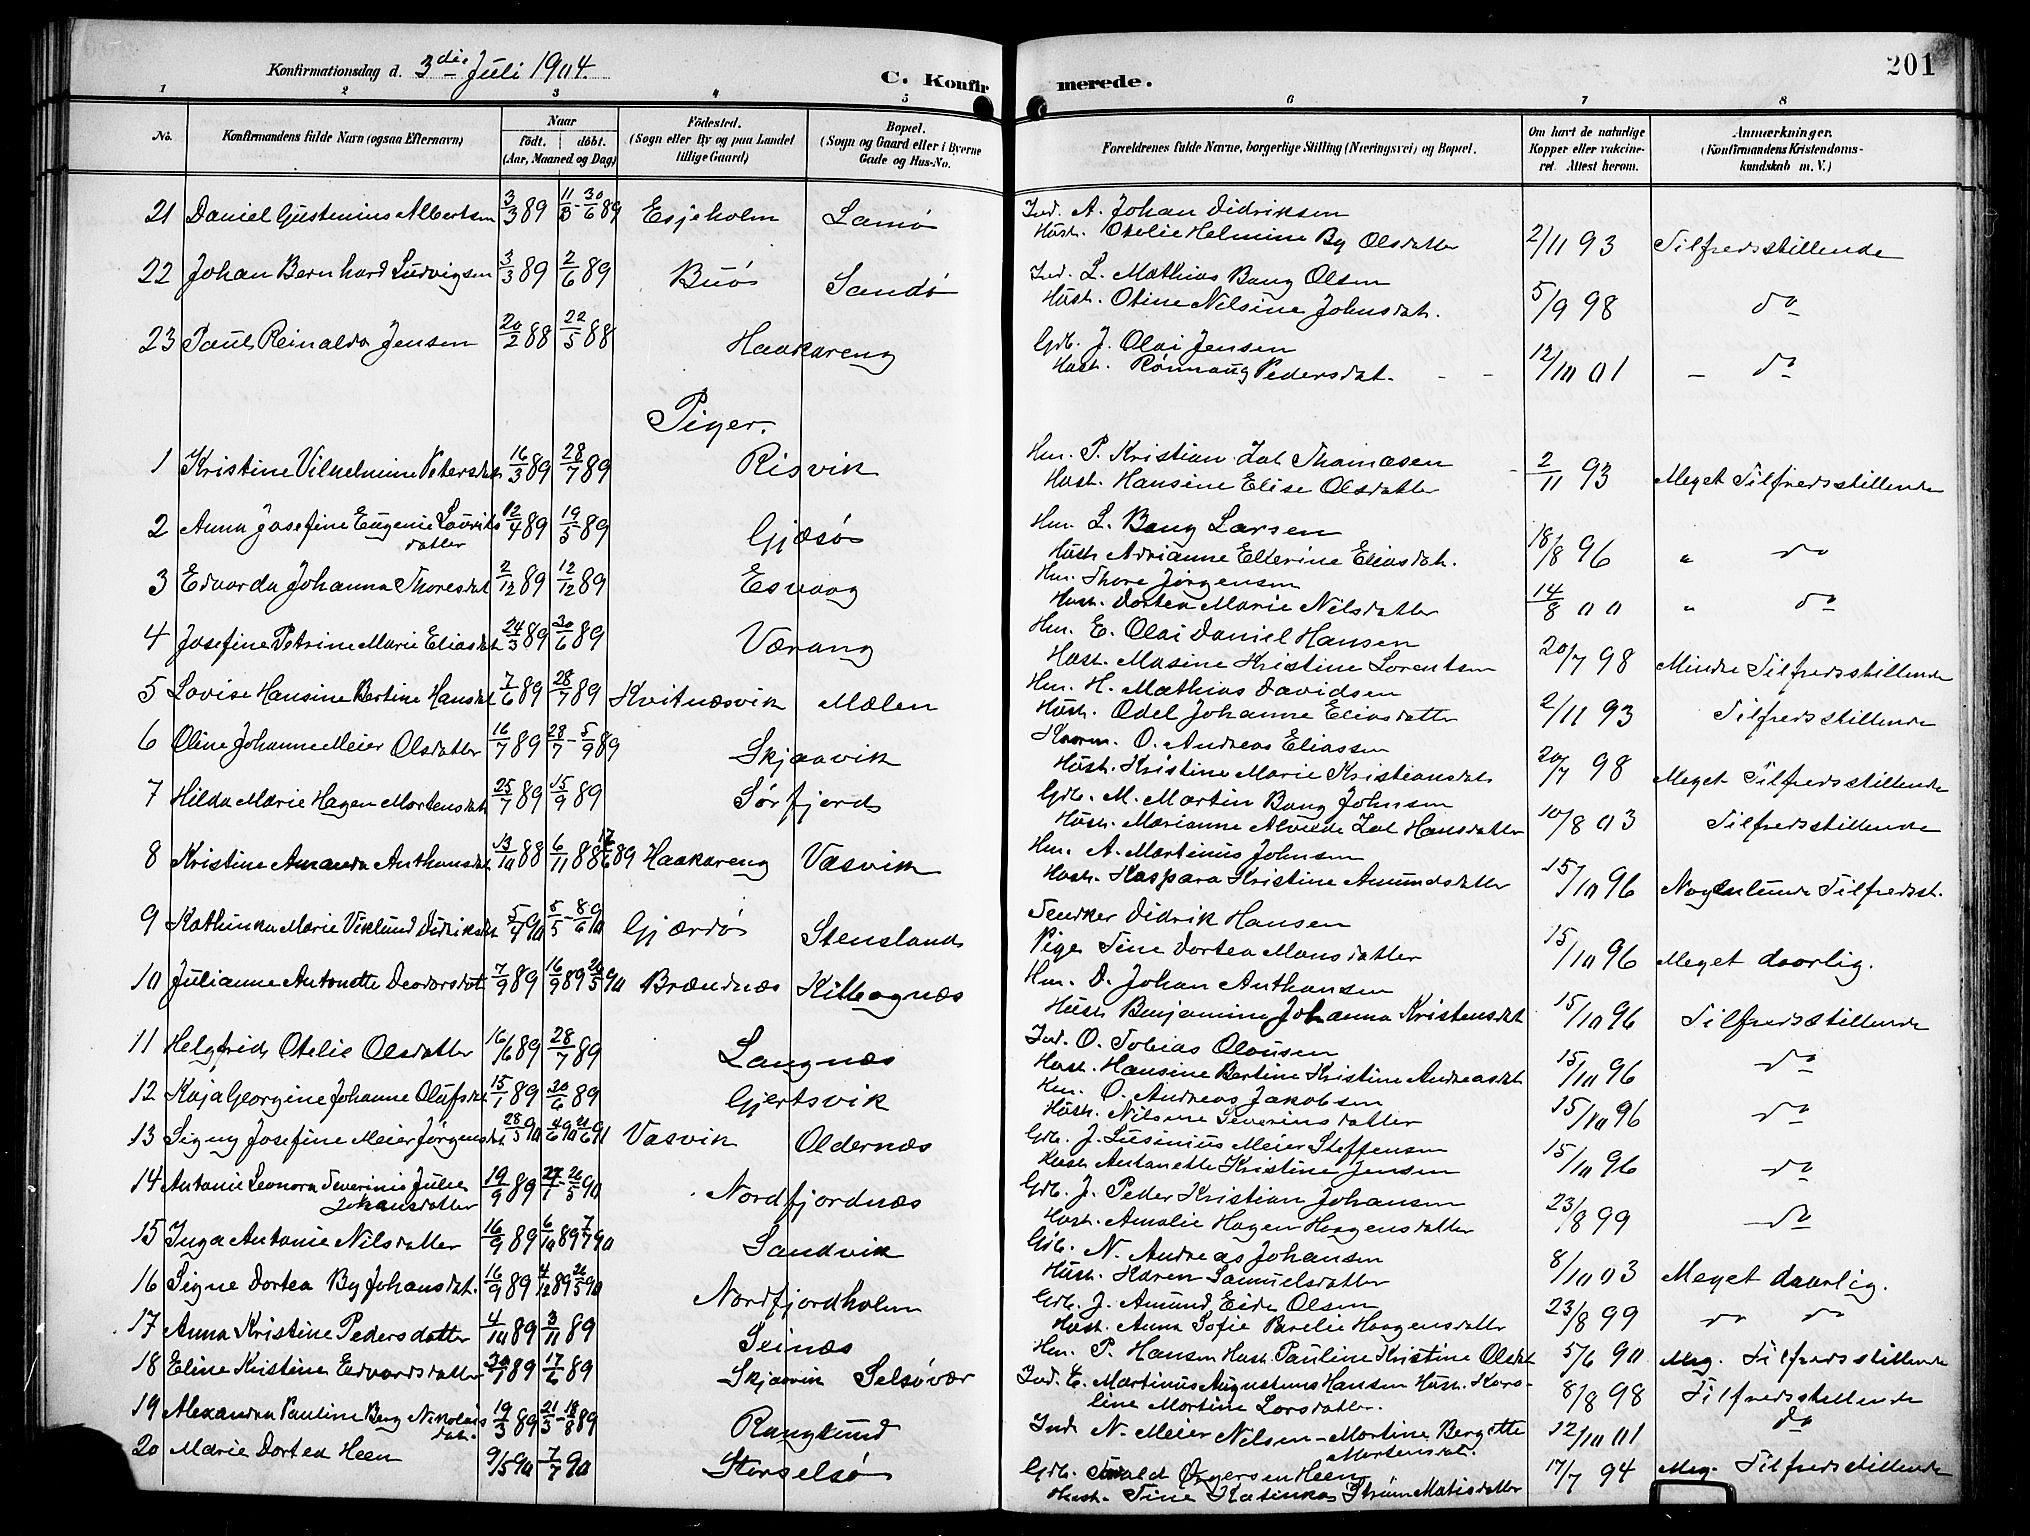 201
Konfirmationsdag d. 3die Juli 1904.
C. Konfirmerede.
1 2 3 4 5 6 7 8
No. Konfirmandens fulde Navn (ogsaa Efternavn) Naar født. døbt. (Aar, Maaned og Dag) Fødested. (Sogn eller By og paa Landet tillige Gaard) Bopæl. (Sogn og Gaard eller i Byerne Gade og Hus-No. Forældrenes fulde Navne, borgerlige Stilling (Næringsvei) og Bopæl. Om havt de naturlige Kopper eller vaccineret. Attest herom. Anmærkninger. (Konfirmandens Kristendomskundskab m. V.)
21 Daniel Gustinius Albertsen 3/3 89 11/3 - 30/6 89 Esjeholm Lamø Ind. A. Johan Didriksen
Hust. Otelie Helmine By Olsdatter 2/11 93 Tilfredsstillende
22 Johan Bernhard Ludvigsen 3/3 89 2/6 89 Buø Sandø Ind. L. Mathias Bang Olsen
Hust. Otine Nilsine Johnsdat. 5/9 98 do
23 Paul Reinaldo Jensen 20/2 88 22/5 88 Haakareng Gdb. J. Olai Jensen
Hust. Rønnaug Pedersdat. - - 12/10 01 - do
Piger.
1 Kristine Vilhelmine Petersdat 16/3 89 28/7 89 Risvik Hm. P. Kristian Zal Thomasen
Hust. Hansine Elise Olsdatter 2/11 93 Meget Tilfredsstillende
2 Anna Josefine Eugenie Lauritsdatter 12/4 89 19/5 89 Gjæsø Hm. L. Bang Larsen
Hust. Adrianne Ellerine Eliasdat. 18/8 96 " do
3 Edvarda Johanna Thoresdat 2/12 89 12/12 89 Esvaag Hm. Thore Jørgensen
Hust. Dortea Marie Nilsdatter 14/8 00 " do
4 Josefine Petrine Marie Eliasdat 24/3 89 30/6 89 Værang Hm. E. Olai Daniel Hansen
Hust. Masine Kristine Lorentsen 20/7 98 Mindre Tilfredsstillende
5 Lovise Hansine Bertine Hansdat 7/6 89 28/7 89 Kvitnæsvik Mælen Hm. H. Mathias Davidsen
Hust. Odel Johanne Eliasdatter 2/11 93 Tilfredsstillende
6 Oline Johanne Meier Olsdatter 16/7 89 28/7 - 5/9 89 Skjaavik O. Andreas Eliassen
Hust. Kristine Marie Kristiansdat 20/7 98 Meget Tilfredsstillende
7 Hilda Marie Hagen Mortensdat 25/7 89 15/9 89 Sørfjord Gdb. M. Martin Bang Johnsen
Hust. Marianne Alvilde Zal Hansdatter 10/8 03 Tilfredsstillende
8 Kristine Amanda Anthonsdat 13/10 88 6/11 88 17/6 89 Haakareng Vasvik Hm. A. Martinus Johnsen
Hust. Kaspara Kristine Amundsdatter 15/10 96 Nogenlunde Tilfredsst.
9 Kathinka Marie Viklund Didriksdat 5/4 90 5/5 - 8/6 90 Gjærdø Stensland Didrik Hansen
Pige Tine Dortea Monsdatter 15/10 96 Meget daarlig.
10 Julianne Antonette Deodorsdat 7/9 89 16/9 89 26/5 90 Brændnæs Kilbognæs Hm. D. Johan Anthonsen
Hust. Benjamine Johanna Kristensdat 15/10 96 Tilfredsstillende
11 Helgfrid Otelie Olsdatter 16/6 89 28/7 89 Langnæs Ind. O. Tobias Olausen
Hust. Hansine Bertine Kristine Andreasdat 15/10 96 do
12 Kaja Georgine Johanne Olufsdat 15/1 89 30/6 89 Gjertsvik Hm. O. Andreas Jakobsen
Hust. Nilsine Severinsdatter 15/10 96 do
13 Signy Josefine Meier Jørgensdat 28/5 90 4/6 90 21/6 91 Vasvik Oldernæs Gdb. J. Lusinius Meier Steffensen
Hust Antonette Kristine Jensen 15/10 96 do
14 Antonie Leonora Severinis Julie Johansdatter 19/9 89 27/7 - 26/5 90 Nordfjordnæs Gdb. J. Peder Kristian Johansen
Hust. Amalie Hagen Haagensdatter 23/8 99 do
15 Inga Antonie Nilsdatter 16/9 89 6/10 89 7/7 90 Sandvik Gdb. N. Andreas Johansen
Hust. Karen Samuelsdatter 8/10 03 Meget daarlig.
16 Signe Dortea By Johansdat. 16/9 89 4/12 89 26/5 90 Nordfjordholm Gdb. J. Amund Eide Olsen
Hust. Anna Sofie Berelie Haagensdatter 23/8 99 do do
17 Anna Kristine Pedersdatter 4/10 89 3/11 89 Seinæs Hm. P. Hansen Hust. Pauline Kristine Olsdat 5/6 90 Meg. Tilfredsstillende
18 Eline Kristine Edvardsdatter 30/1 89 17/6 89 Skjaavik Selsøvær Ind. E. Martinus Augustinus Hansen Hust. Karoline Mortine Larsdatter. 8/8 98 Tilfredsstillende
19 Alexandra Pauline Berg Nikolaisdat. 19/3 89 21/5 - 18/8 89 Rangsund Ind N. Meier Nilsen - Martine Bergitte Mortensdat. 12/10 01 do
20 Marie Dortea Heen 9/5 90 - 7/7 90 Storselsø Gdb. Ørgersen Heen
Hust. Tine Katinka Strøm Matisdatter 17/7 94 Meg. Tilfredsstillende